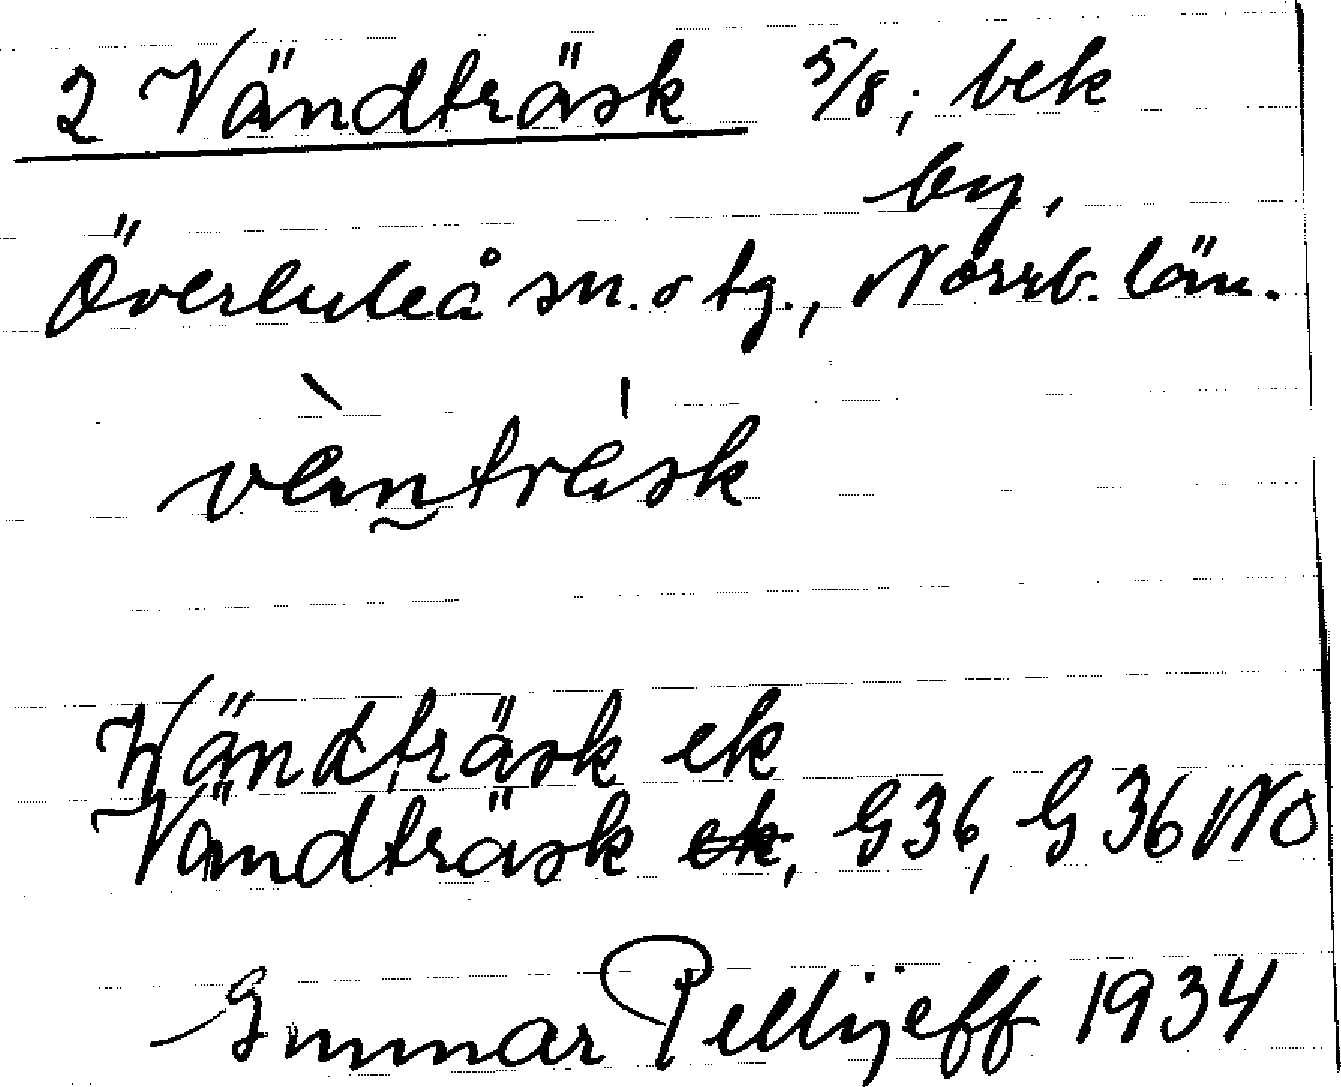 2 Vändträsk 5/8; bek
by,
Överluleå sn. o tg., Norrb. län.
vànträsk
Vändträsk ek
Vändträsk ek, G36, G 36 NO
Gunnar Pellijeff 1934